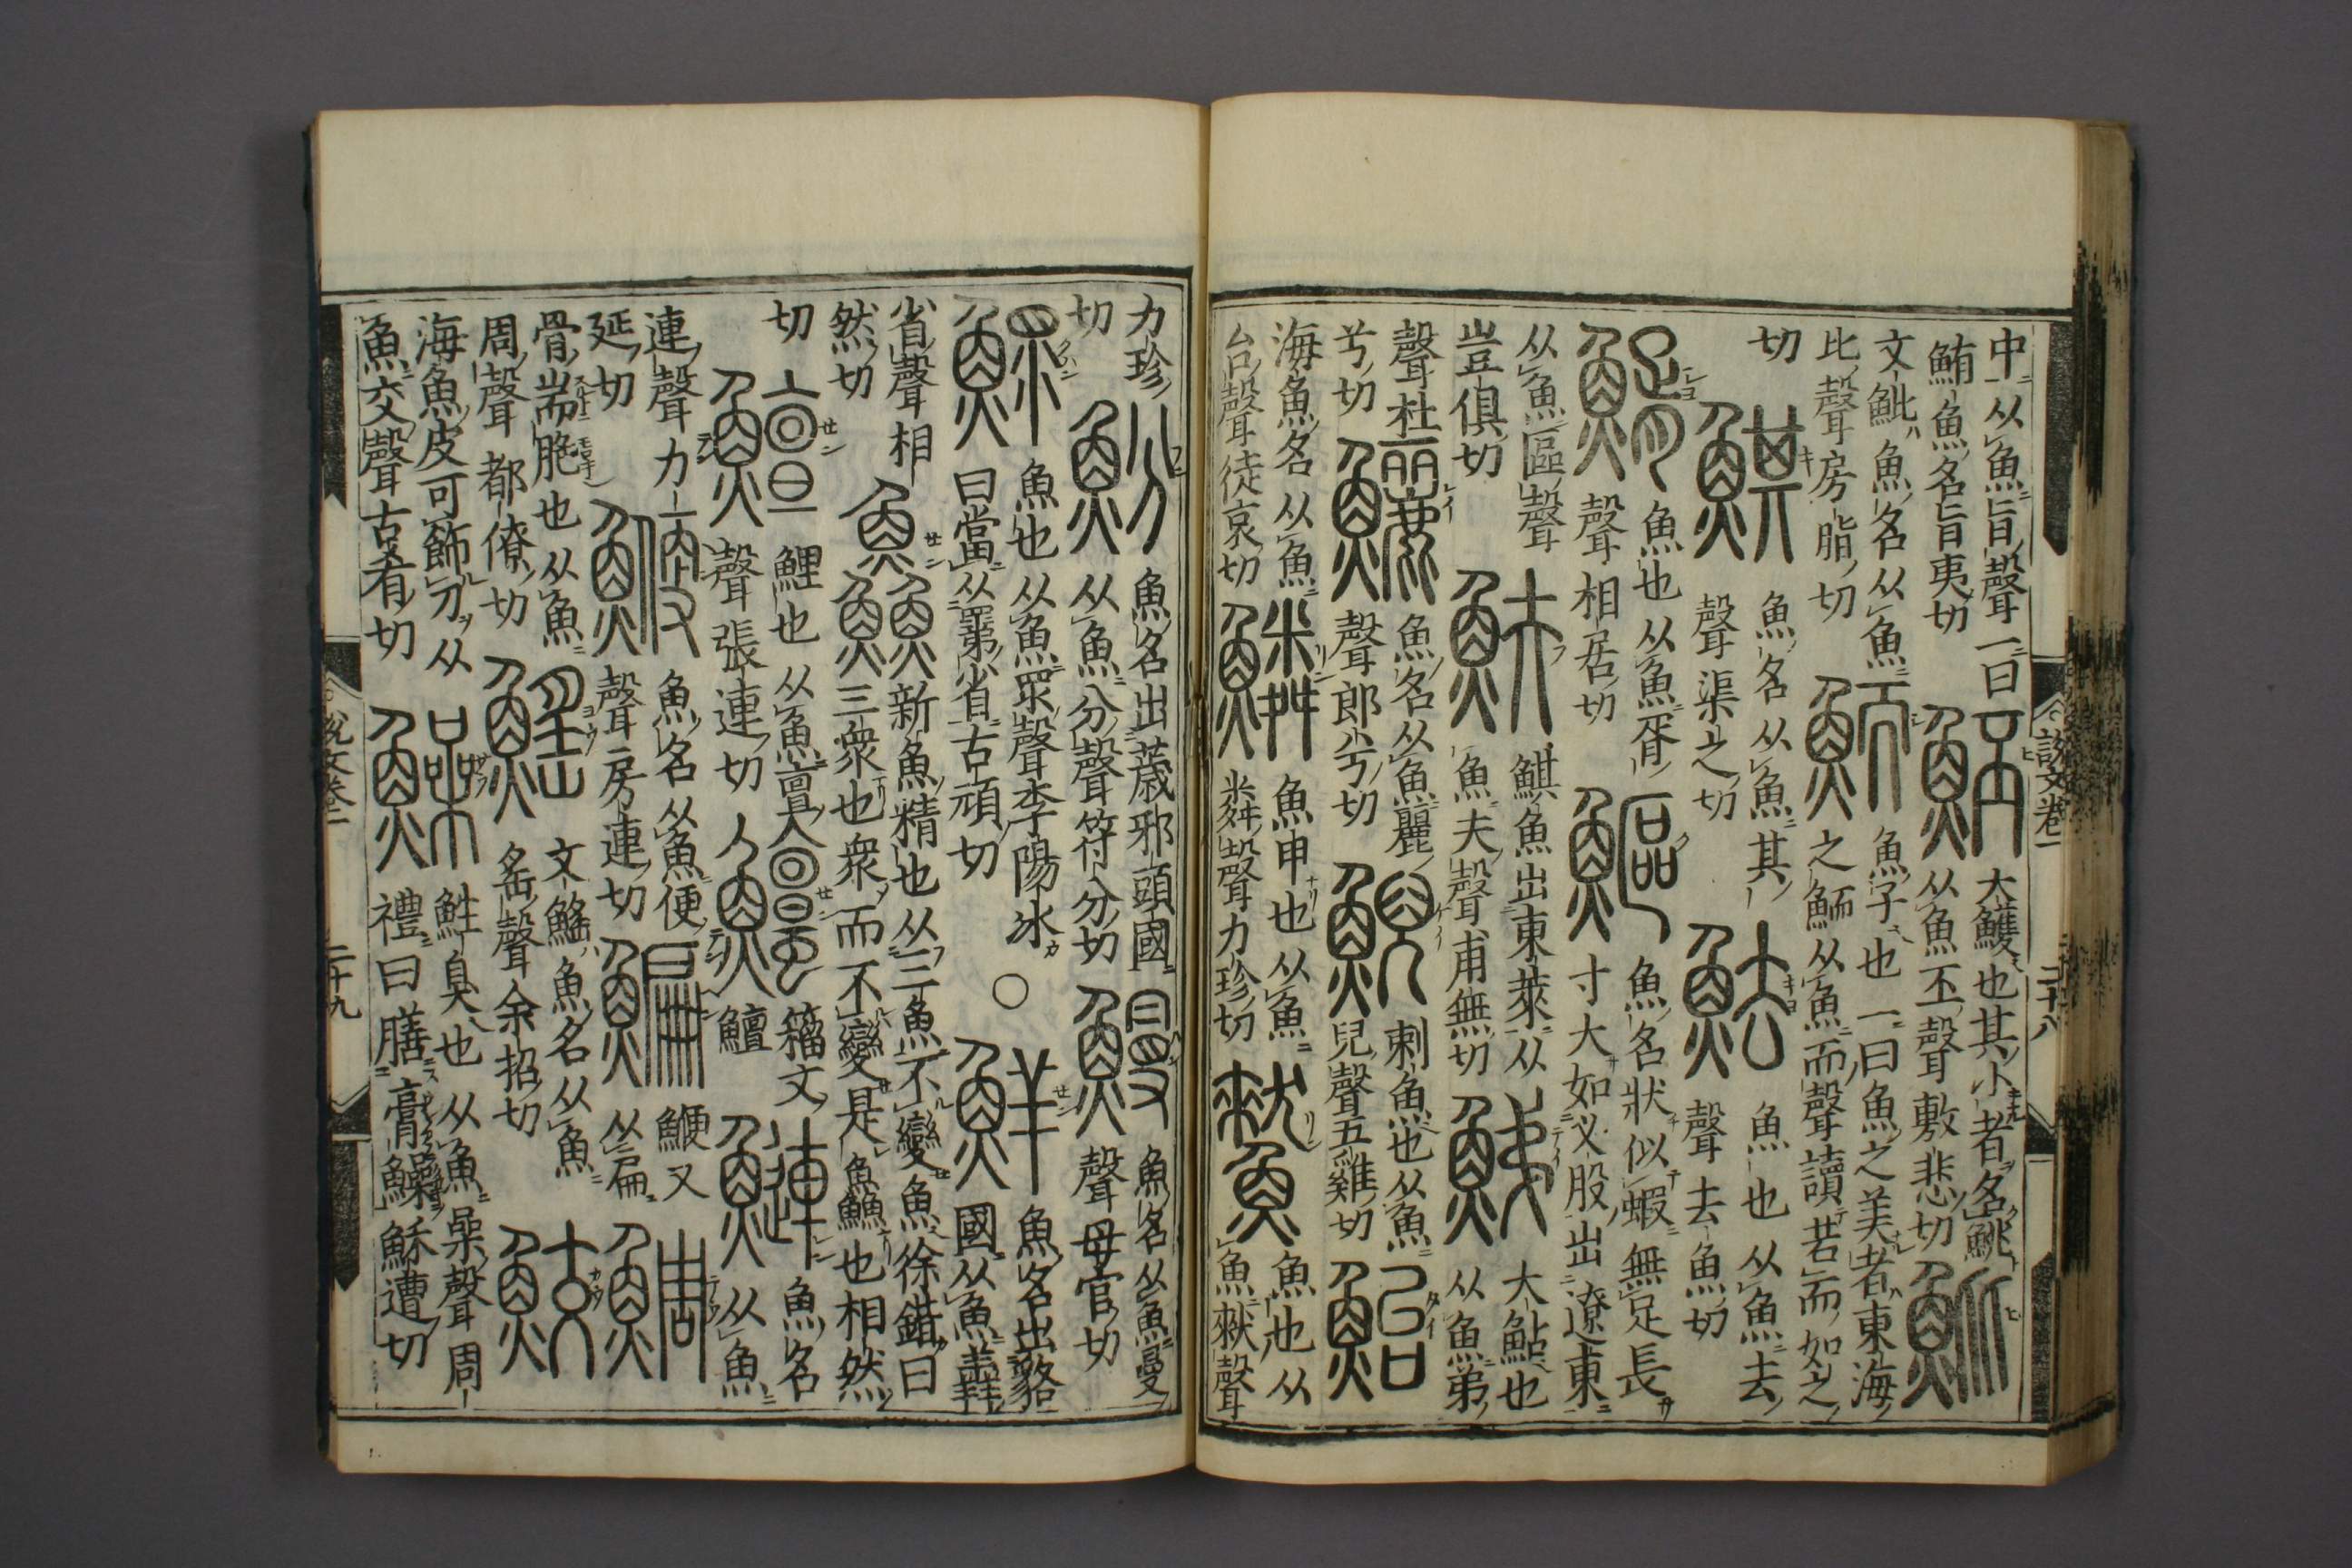 説文卷二
二十八
中从魚旨聲一曰
鮪魚名旨夷切
魾
大鱯也其小者名鮡
从魚丕聲敷悲切
魮
文魮魚名从魚
比聲房脂切
鮞
魚子也一曰魚之美者東海
之鮞从魚而聲讀若而如之
切
鯕
魚名从魚其
聲渠之切
魼
魚也从魚去
聲去魚切
魚也从魚胥
聲相居切
鰸
魚名狀似蝦無足長
寸大如义股出遼東
从魚區聲
豈俱切
鯕魚出東萊从
魚夫聲甫無切
鮷
大鮎也
从魚弟
聲杜
兮切
鱺
魚名从魚麗
聲郎兮切
鯢
剌魚也从魚
兒聲五雞切
鮐
海魚名从魚
台聲徒哀切
鱗
魚甲也从魚
粦聲力珍切
魚也从
魚猌聲
力珍
切
魵
魚名出薉邪頭國
从魚分聲符分切
鰻
魚名从魚曼
聲母官切
鰥
魚也从魚眔聲李陽冰
曰當从䍤省古頑切
○
鮮
魚名出貉
國从魚羴
省聲相
然切
鱻
新魚精也从三魚不變魚徐鍇曰
三衆也衆而不變是鱻也相然
切
鱣
鯉也从魚亶
聲張連切
籀文
鱣
鰱
魚名
从魚
連聲力
延切
鯾
魚名从魚便
聲房連切
鯿
鯾又
从扁
鯛
骨耑脃也从魚
周聲都僚切
鰩
文鰩魚名从魚
䍃聲余招切
鮫
海魚皮可飾刀从
魚交聲古肴切
鱢
鮏臭也从魚喿聲周
禮曰膳膏鱢穌遭切
説文卷二
二十九